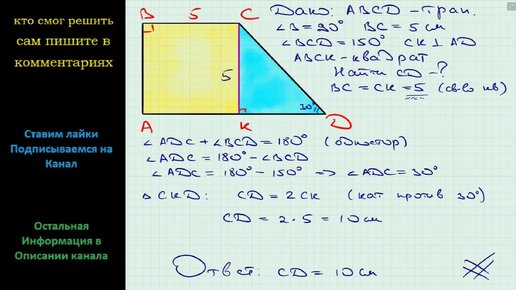 кто смог решить
сам пишите в
комментариях
Ставим лайки
Подписываемся на
Канал
Остальная
Информация в
Описании канала
B 5 C
5
30°
A K D
Дано: ABCD – трап.
∠B = 90° BC = 5 см
∠BCD = 150° CK ⊥ AD
ABCK – квадрат
Найти CD – ?
BC = CK = 5 (св-во кв)
∠ADC + ∠BCD = 180° (односторон)
∠ADC = 180° – ∠BCD
∠ADC = 180° – 150° => ∠ADC = 30°
△CKD: CD = 2CK (кат против 30°)
CD = 2 · 5 = 10 см
Ответ: CD = 10 см